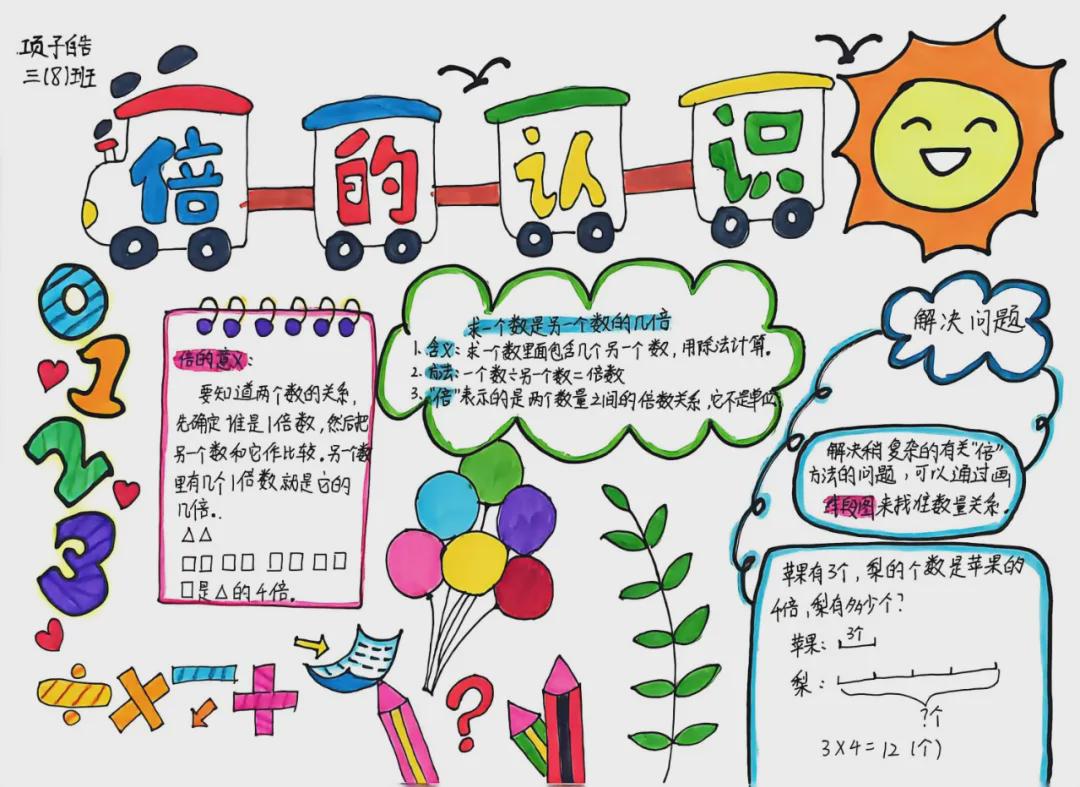 项子皓
三(8)班
倍的认识
0
1
2
3
倍的意义:
要知道两个数的关系,
先确定谁是1倍数,然后把
另一个数和它作比较。另一个数
里有几个1倍数就是它的
几倍。
△△
□□ □□ □□ □□
□是△的4倍。
求一个数是另一个数的几倍
1. 含义:求一个数里面包含几个另一个数,用除法计算。
2. 方法:一个数÷另一个数=倍数
3. “倍”表示的是两个数量之间的倍数关系,它不是单位。
解决问题
解决稍复杂的有关“倍”
方法的问题,可以通过画
线段图来找准数量关系。
苹果有3个,梨的个数是苹果的
4倍,梨有多少个?
苹果: 3个
梨:
?个
3×4=12(个)
÷ × - +
?